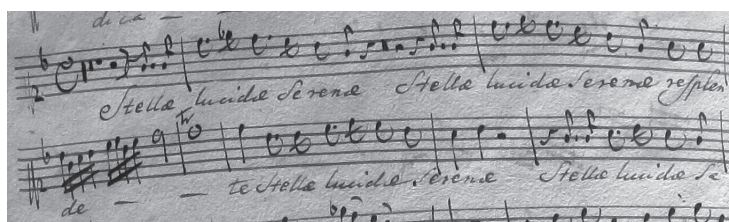 dica - -
Stellæ lucidæ Serenæ Stellæ lucidæ Serenæ resplen
tr
de - - te Stellæ lucidæ Serenæ Stellæ lucidæ Se